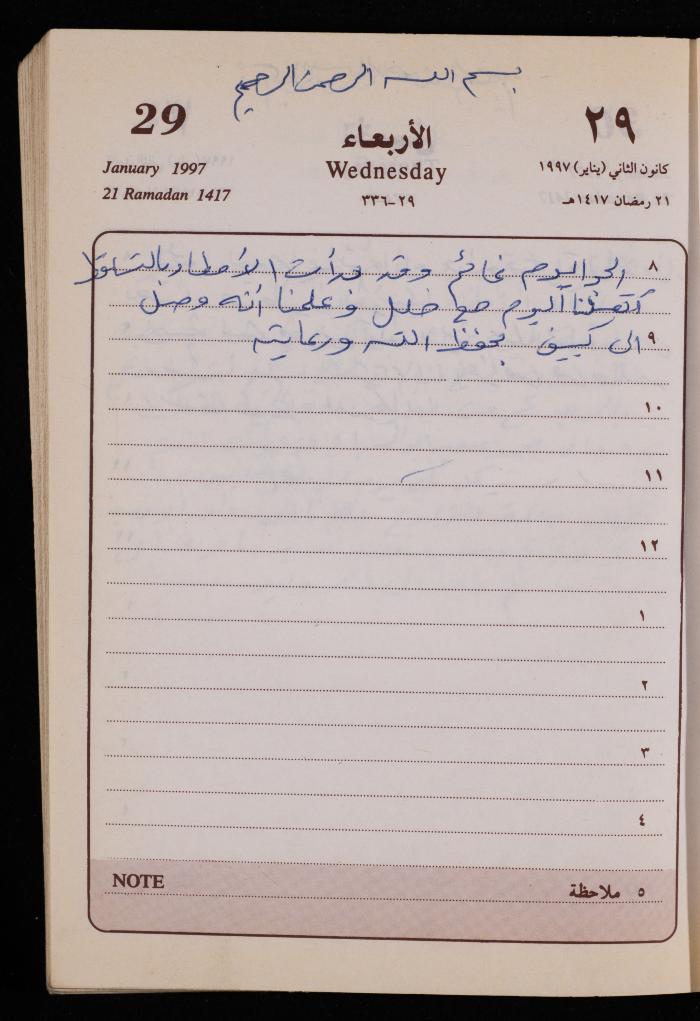 بسم الله الرحمن الرحيم
29
٢٩
الأربعاء
January 1997
Wednesday
كانون الثاني (يناير) ١٩٩٧
21 Ramadan 1417
٢٩-٣٣٦
٢١ رمضان ١٤١٧هـ
٨ الجو اليوم غائم وقد بدأت الأمطار بالتساقط
اليوم مع خليل وعلمنا أنه وصل
٩ الى كييف بحفظ الله ورعايته
١٠
١١
١٢
١
٢
٣
٤
NOTE
٥ ملاحظة